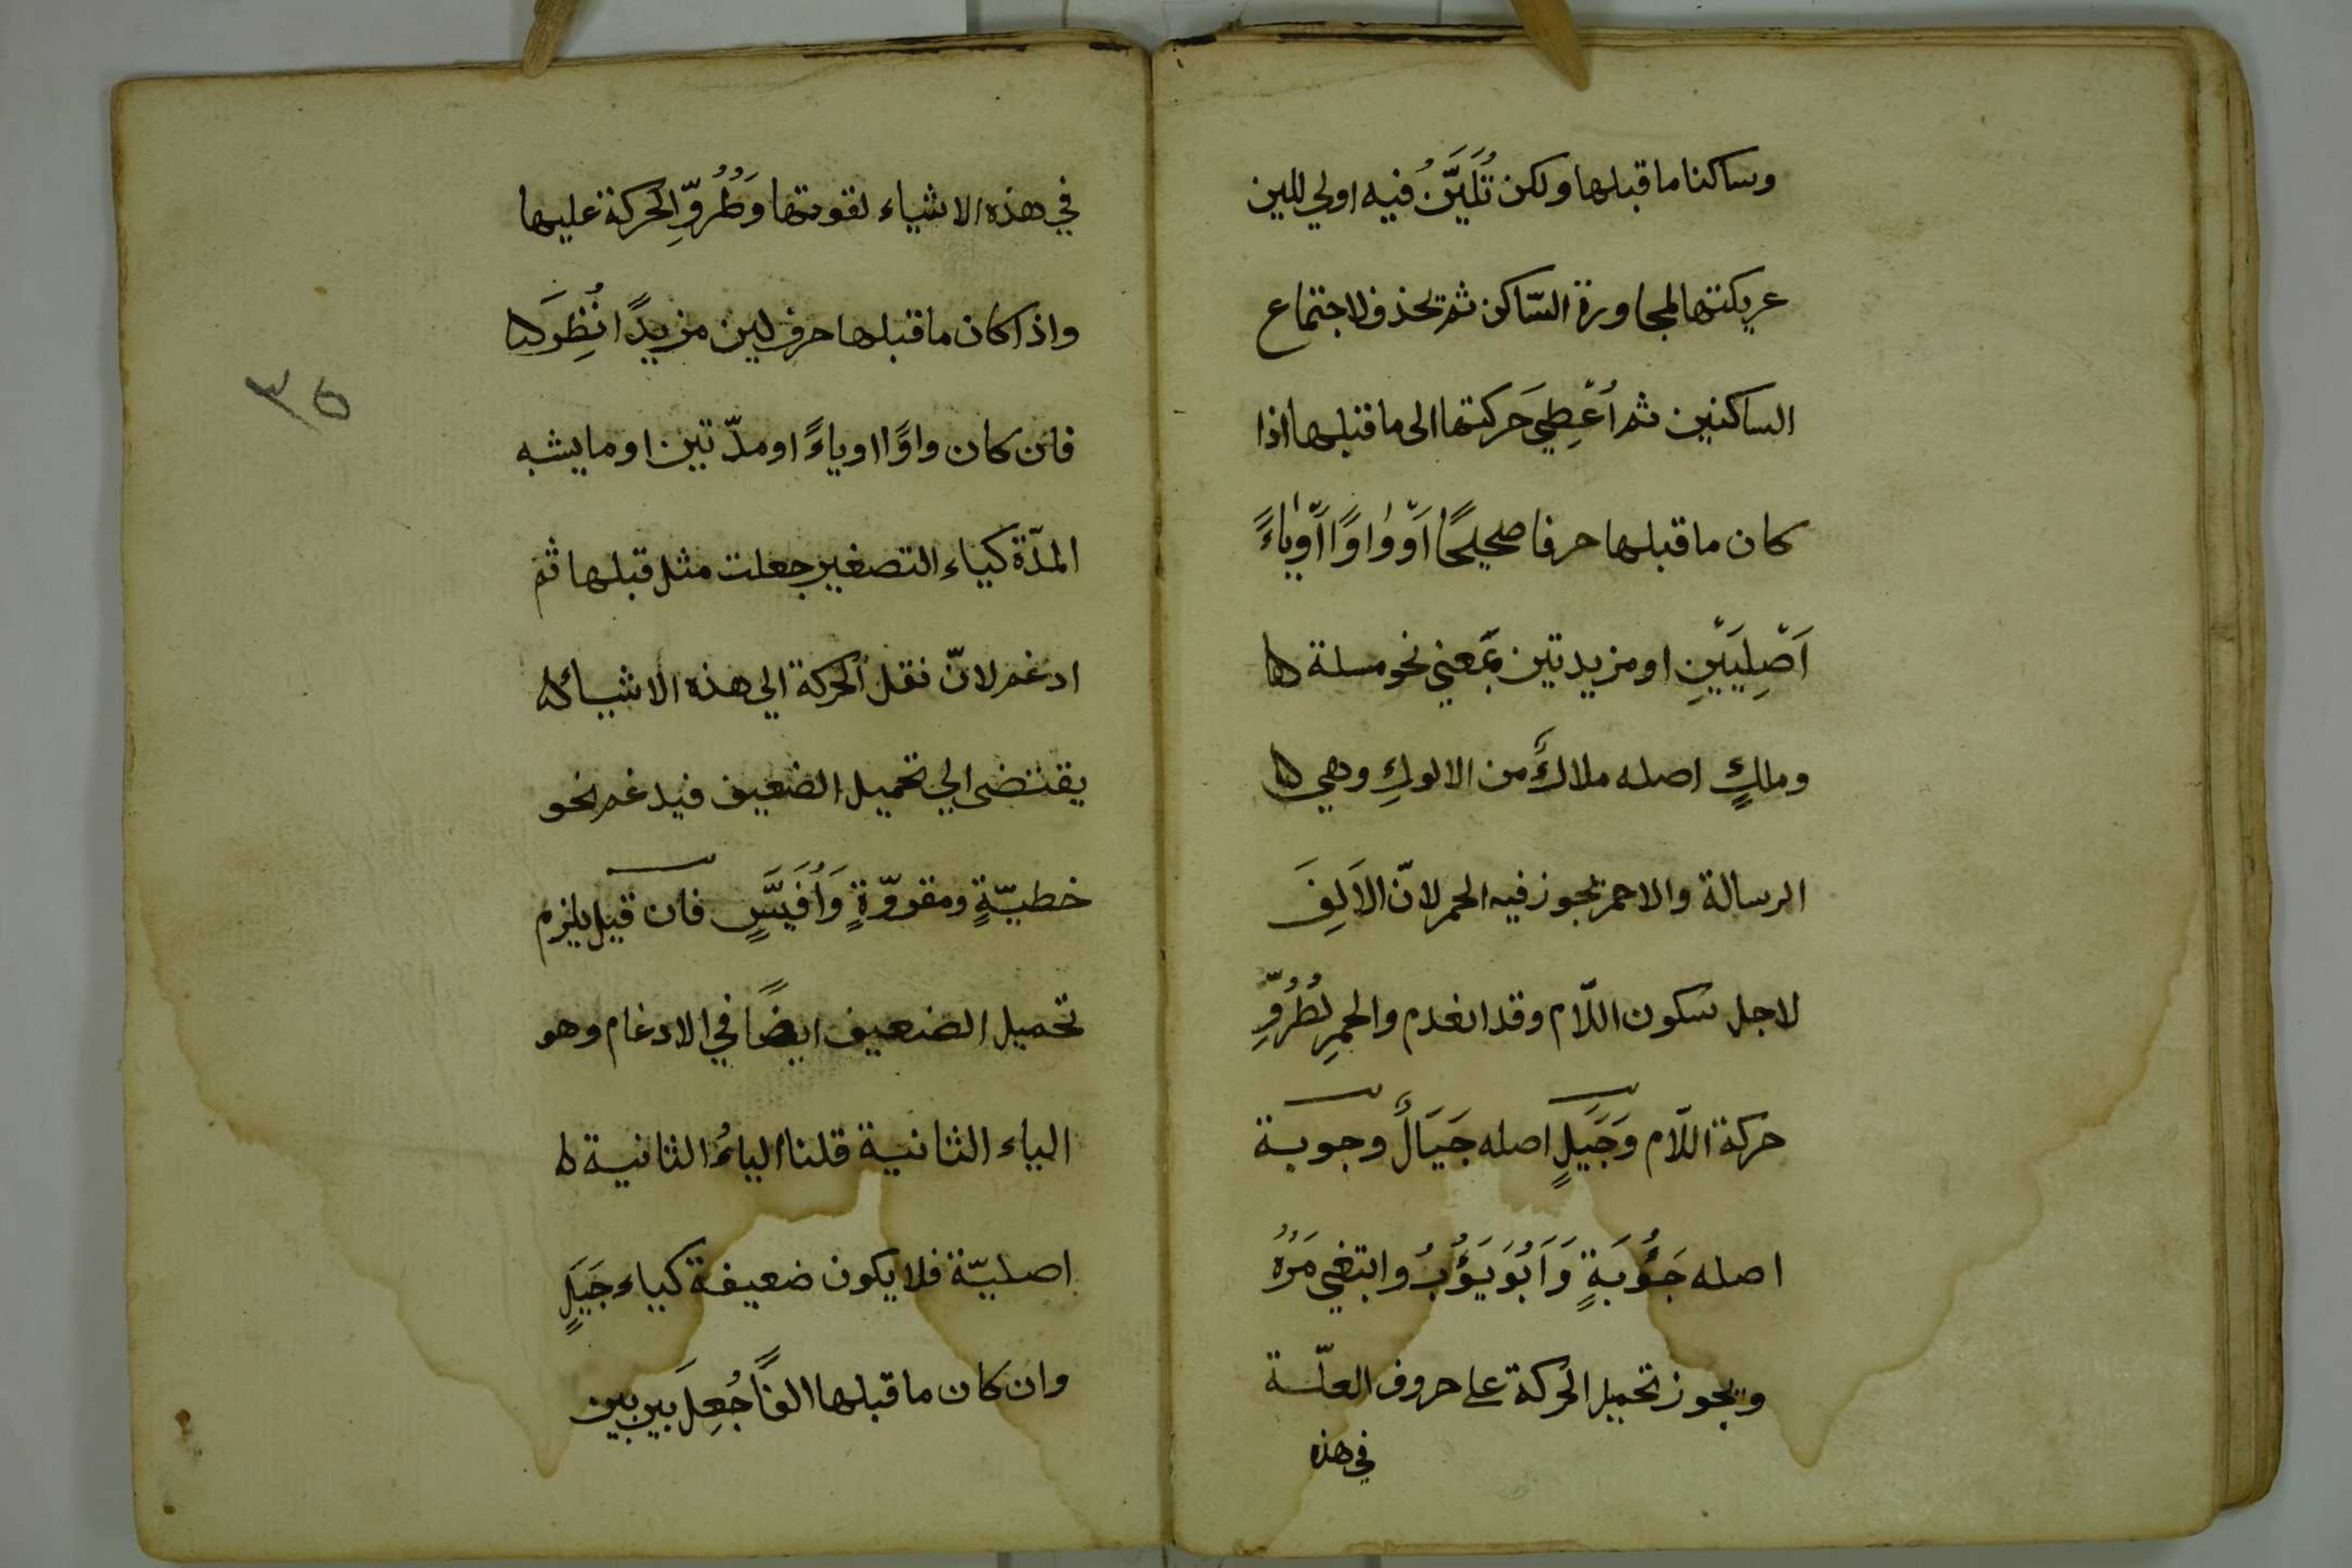 وساكنا ما قبلها ولكن تُلَيَّنُ فيه اولي للين
عريكتها لمجاورة السّاكن ثم تحذف لاجتماع
الساكنين ثم اُعْطِيَ حَركتها الى ما قبلها اذا
كان ما قبلها حرفا صحيحًا اَوْ وٰاوًا اَوْ يٰاءً
اَصْلِيَيْنِ او مزيدتين بمَعني نحو مسلة
وملكٍ اصله ملاكَ من الالوكِ وهي
الرسالة والاحمر يجوز فيه الحمر لانّ الاَلِفَ
لاجل سكون اللّام وقد انعدم والحمرِ لطُرُوِّ
حركة اللّام وَجَيَلٍ اصله جَيَألٌ وجوبة
اصله جَؤُبَةٍ وَاَبُوَيُؤُبُ وابتغي مَرُهُ
ويجوز تحميل الحركة على حروف العلّة
في هذه
في هذه الاشياء لقوتها وَطُرُوِّ الحركة عليها
واذا كان ما قبلها حرف لين مزيدًا نُظِرَ
فان كان واوًا او ياءً او مدّتين او ما يشبه
المدّة كياء التصغير جعلت مثل قبلها ثم
ادغم لانّ نقل الحركة الي هذه الاشياء
يقتضى الي تحميل الضعيف فيدغم نحو
خطيّةٍ ومقروّةٍ وَاُفَيِّسٍ فان قيل يلزم
تحميل الضعيف ايضًا في الادغام وهو
الياء الثانية قلنا الياءُ الثانية
اصليّة فلا يكون ضعيفة كياء جَيَلٍ
وان كان ما قبلها الفًا جُعِلَ بين بين
٣٥